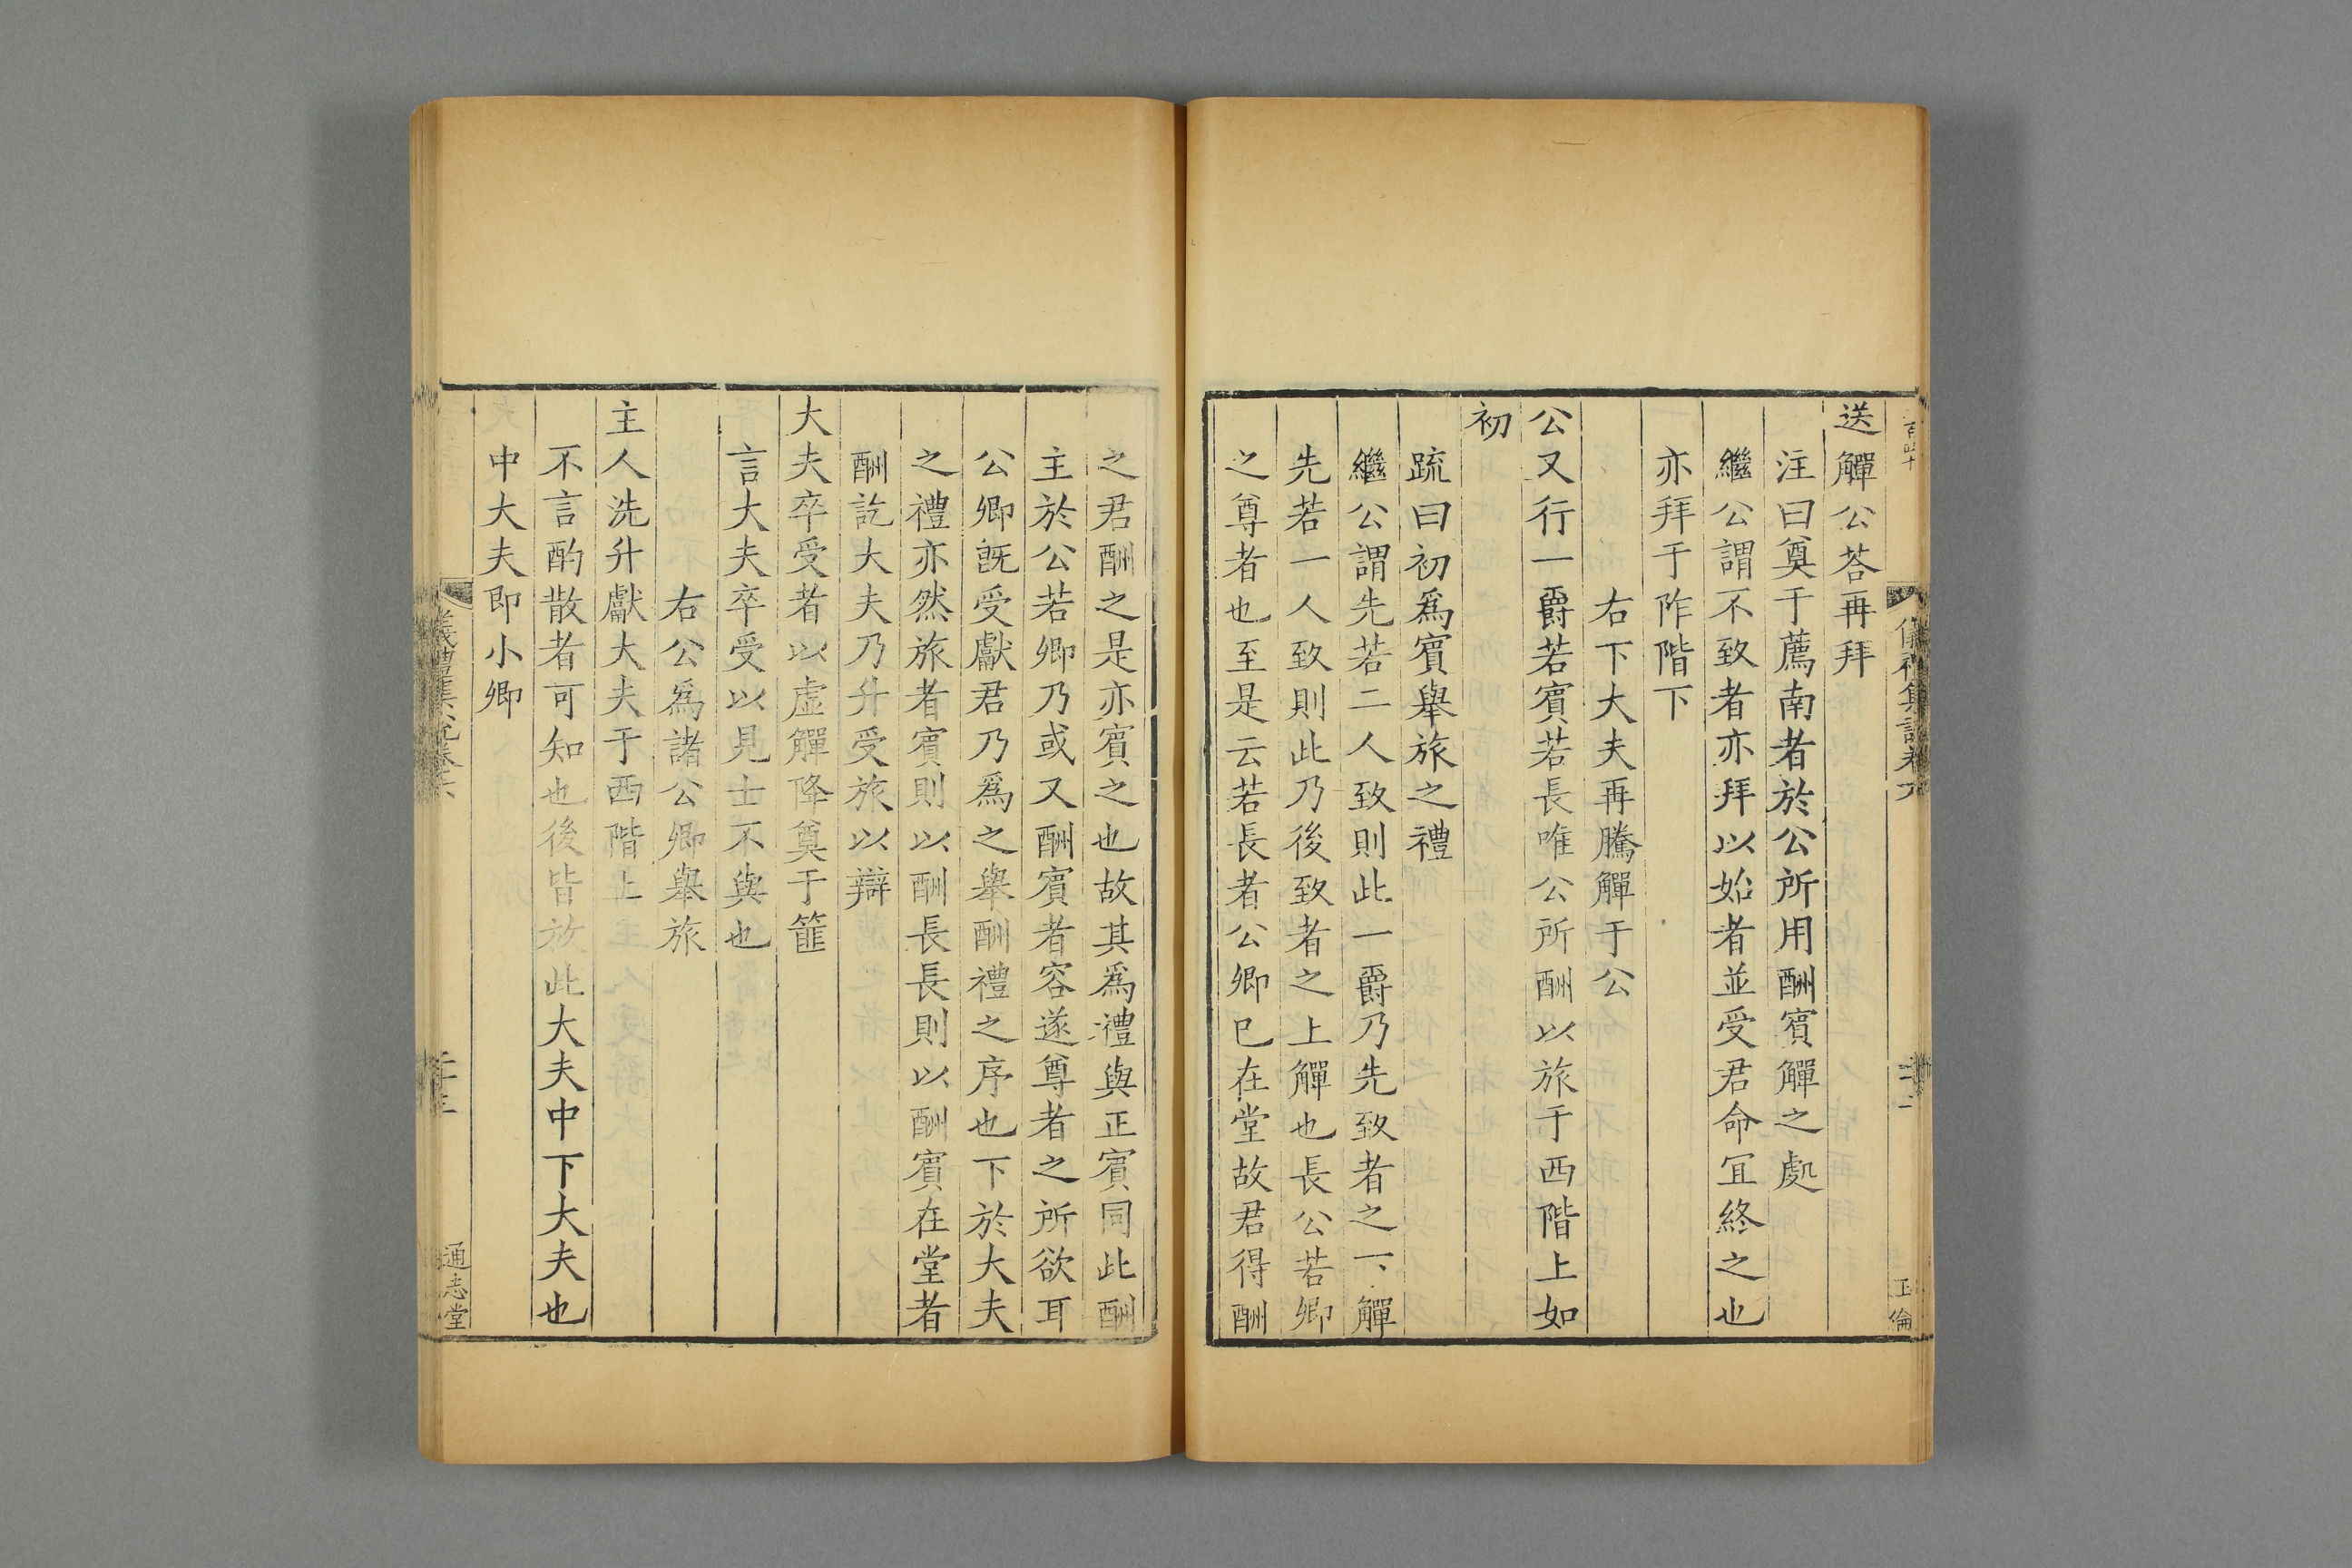 送觶公荅再拜
注曰奠于薦南者於公所用酬賓觶之處
繼公謂不致者亦拜以始者並受君命冝終之也
亦拜于阼階下
右下大夫再騰觶于公
公又行一爵若賓若長唯公所酬以旅于西階上如
初
疏曰初爲賓舉旅之禮
繼公謂先若二人致則此一爵乃先致者之下觶
先若一人致則此乃後致者之上觶也長公若卿
之尊者也至是云若長者公卿巳在堂故君得酬
之君酬之是亦賓之也故其爲禮與正賓同此酬
主於公若卿乃或又酬賓者容遂尊者之所欲耳
公卿旣受獻君乃爲之舉酬禮之序也下於大夫
之禮亦然旅者賓則以酬長長則以酬賓在堂者
酬訖大夫乃升受旅以辯
大夫卒受者以虛觶降奠于篚
言大夫卒受以見士不與也
右公爲諸公卿舉旅
主人洗升獻大夫于西階上
不言酌散者可知也後皆放此大夫中下大夫也
中大夫即小卿
儀禮集說卷六
二十三
通志堂